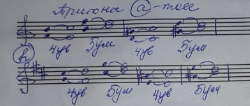 Тритоны ⓐ-moll
4ув 5ум 4ув 5ум
4ув 5ум 4ув 5ум